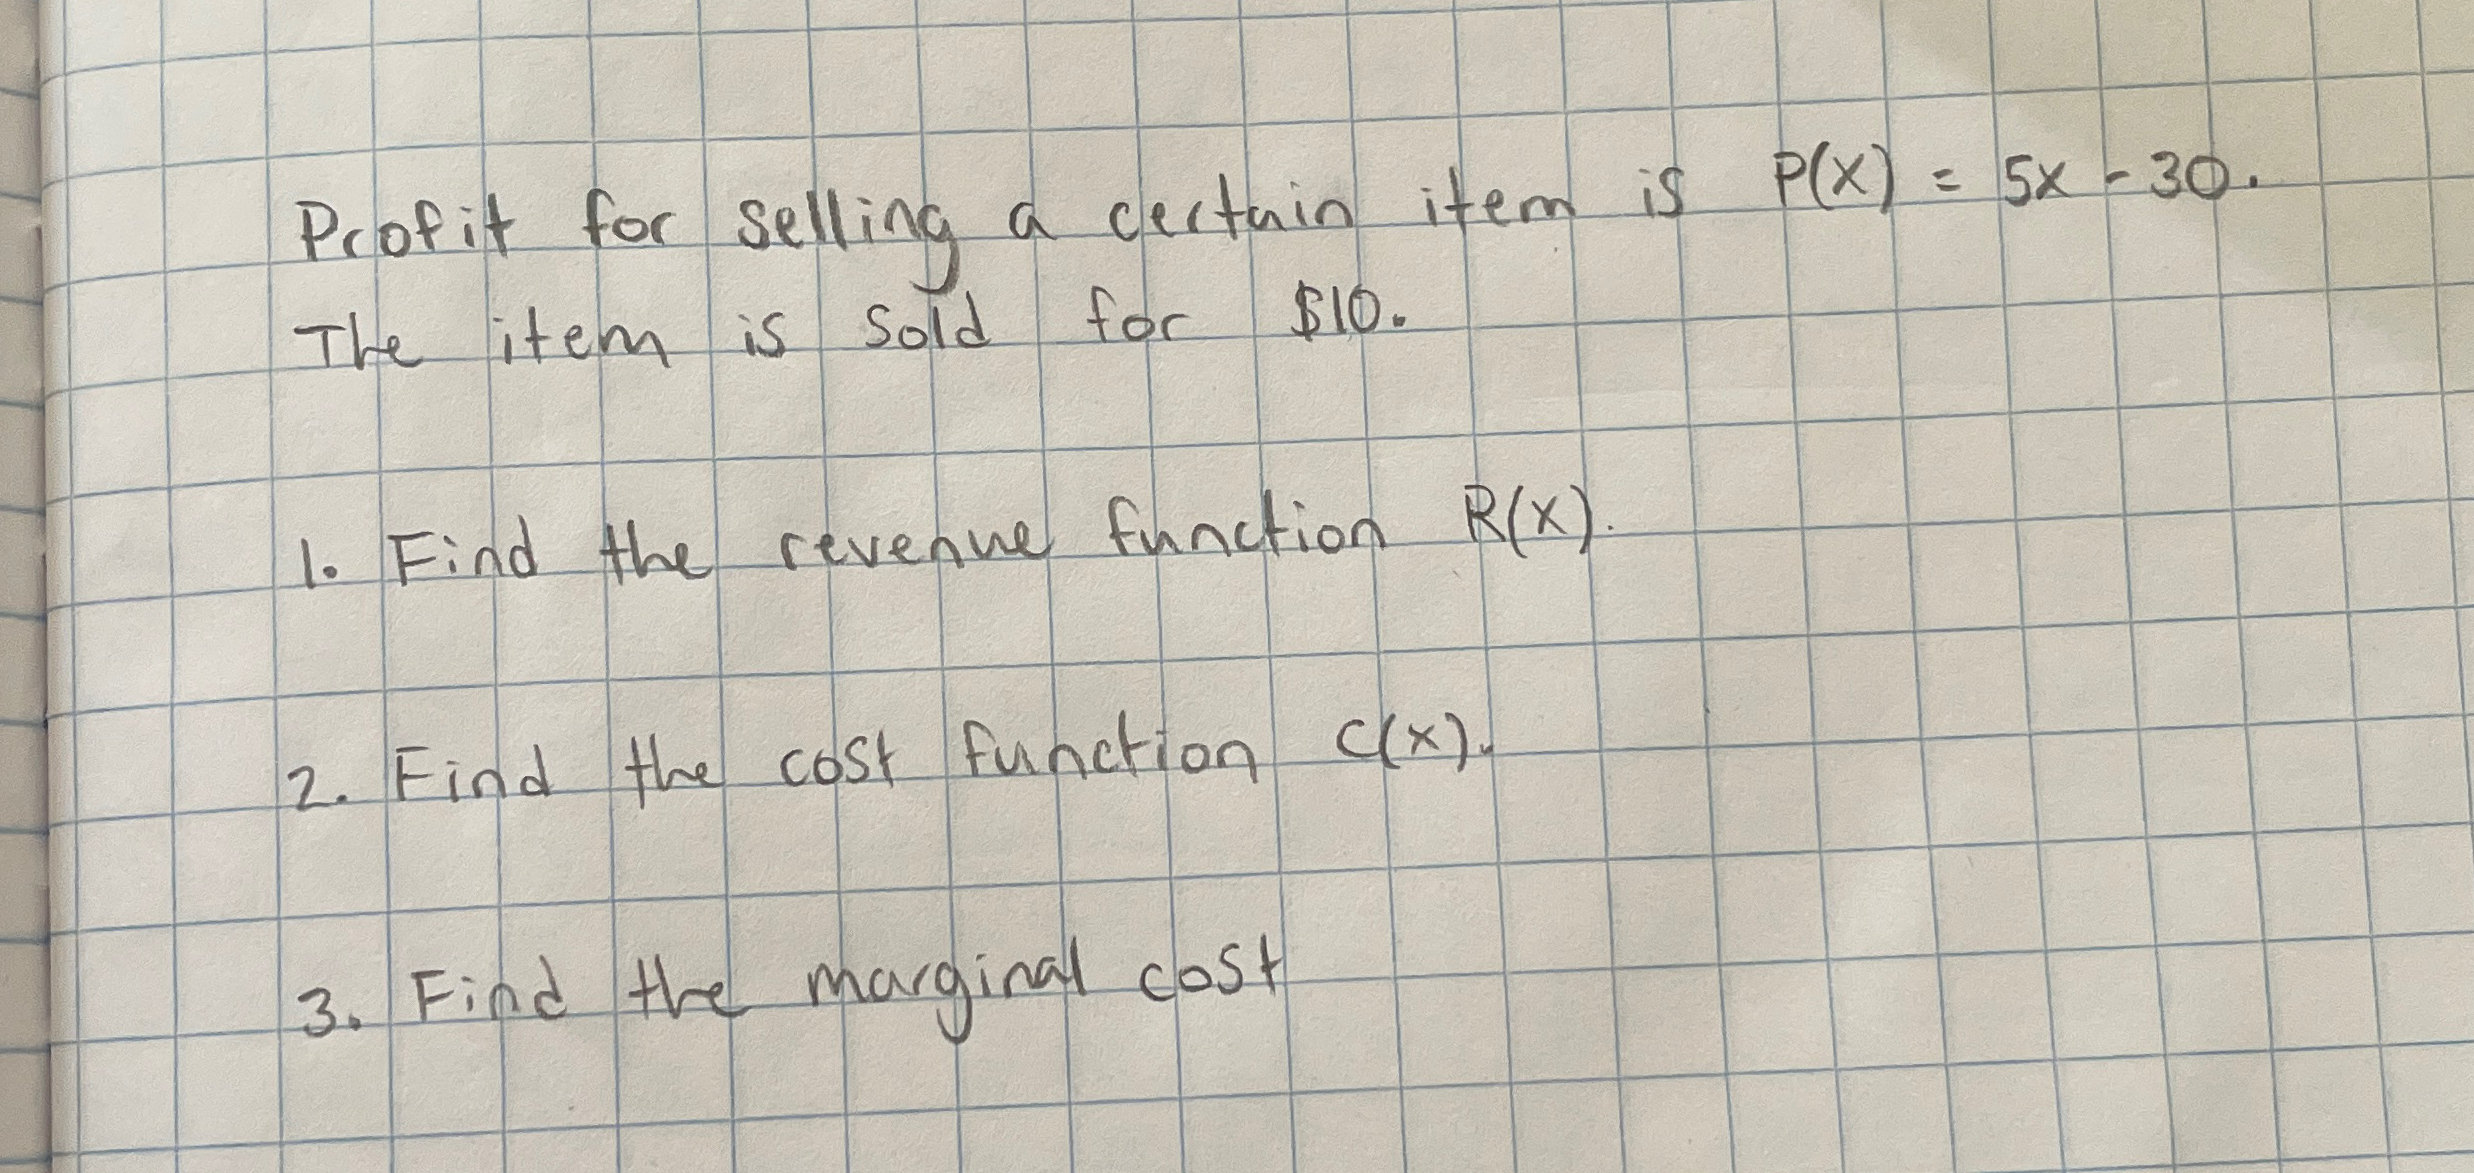 Profit for selling a certain item is P(x) = 5x - 30.
The item is sold for $10.
1. Find the revenue function R(x).
2. Find the cost function C(x).
3. Find the marginal cost